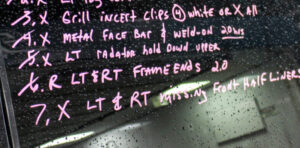 3. X Grill incert clips ④ white or X All
4. X metal Face Bar & weld-on 2.0ws
5. X LT radator hold Down upper
6. R LT & RT Frame Ends 2.0
7, X LT & RT missing Front Half Liners